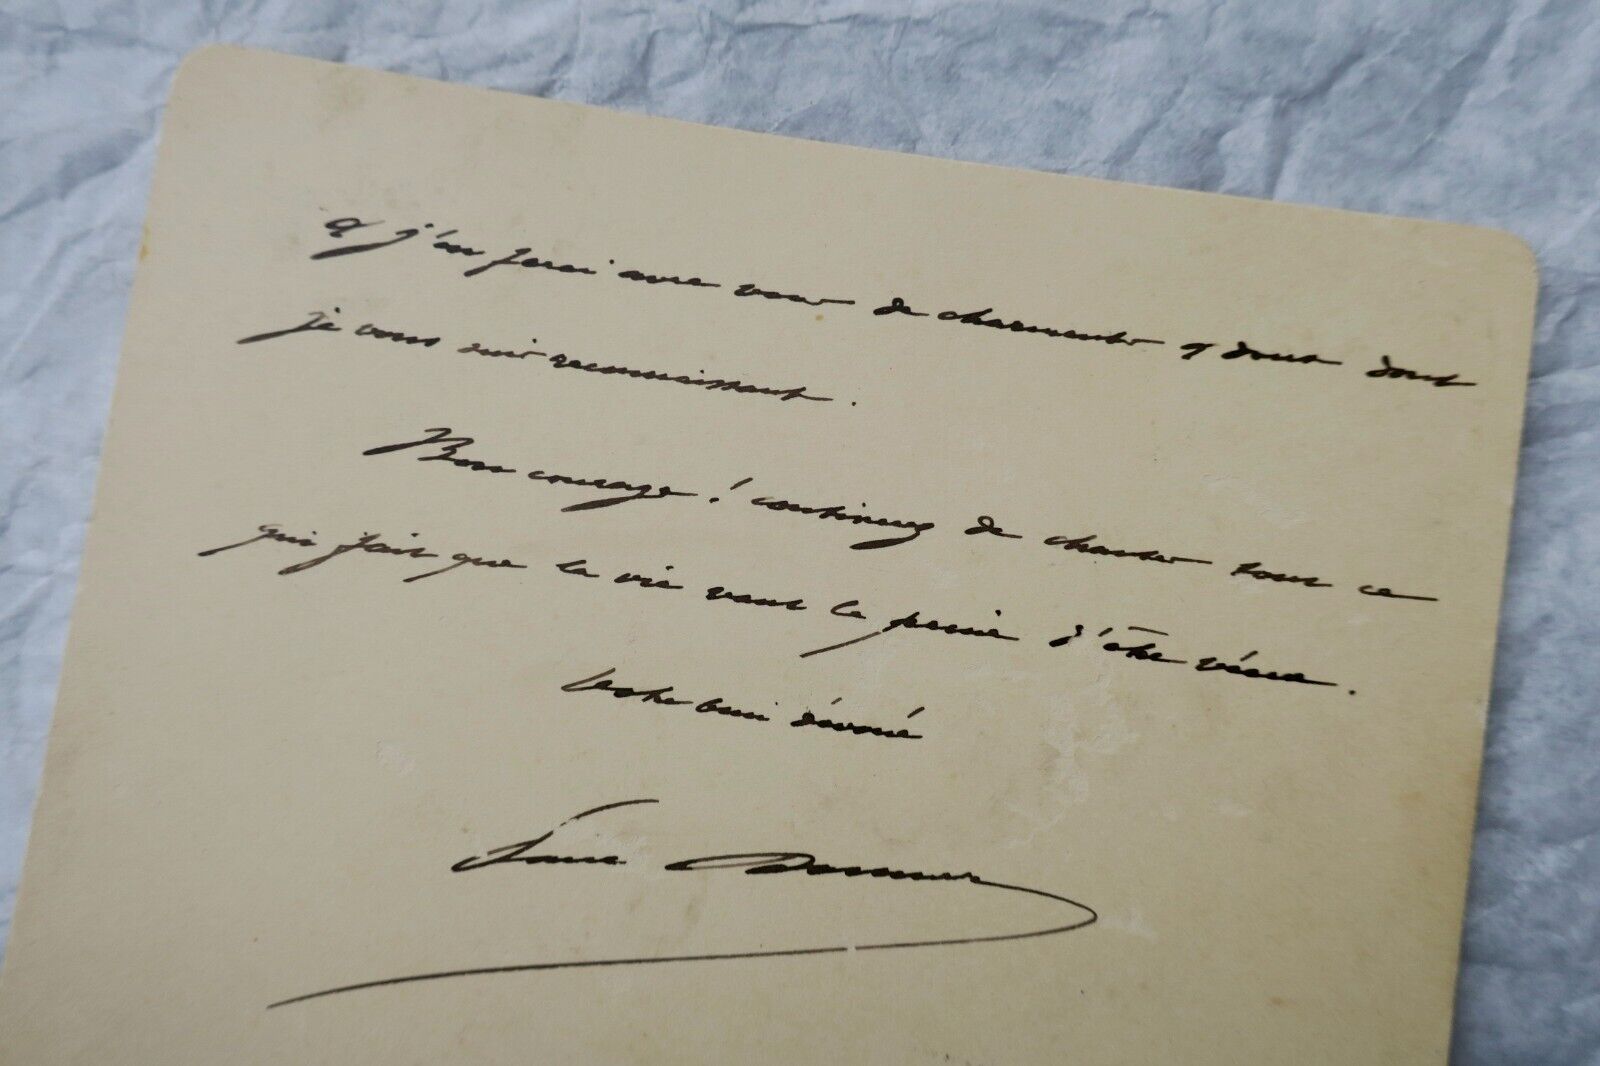 & j'en ferai avec vous de charmants & doux dont
je vous suis reconnaissant.
Bon courage ! continuez de chanter tout ce
qui fait que la vie vaut la peine d'être vécue.
Votre bien dévoué